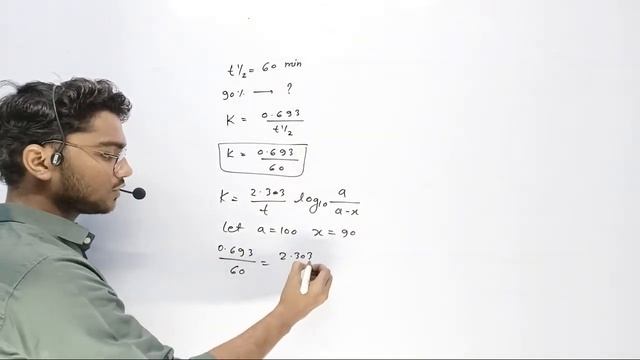 t½ = 60 min
90% → ?
K = 0.693 / t½
K = 0.693 / 60
K = 2.303 / t log₁₀ a / a-x
let a = 100 x = 90
0.693 / 60 = 2.303